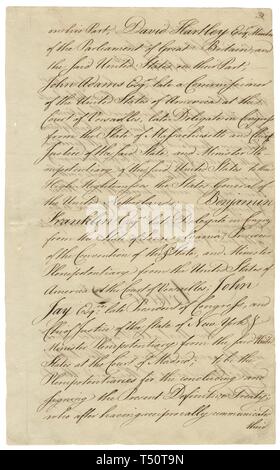 on his Part, David Hartley Esqr. Member
of the Parliament of Great Britain, and
the said United States on their Part,
John Adams Esqr. late a Commissioner
of the United States of America at the
Court of Versailles, late Delegate in Congress
from the State of Massachusetts and Chief
Justice of the said State, and Minister Ple-
nipotentiary of the said United States to their
High Mightinesses the States General of
the United Netherlands, Benjamin
Franklin Esqr. late Delegate in Congress
from the State of Pennsylvania, President
of the Convention of the sd. State, and Minister
Plenipotentiary from the United States of
America at the Court of Versailles, John
Jay Esqr. late President of Congress, and
Chief Justice of the State of New York &
Minister Plenipotentiary from the said United
States at the Court of Madrid; to be the
Plenipotentiaries for the concluding and
signing the Present Definitive Treaty;
who after having reciprocally communicated
their
alamy
Image ID: T50T9N
www.alamy.com